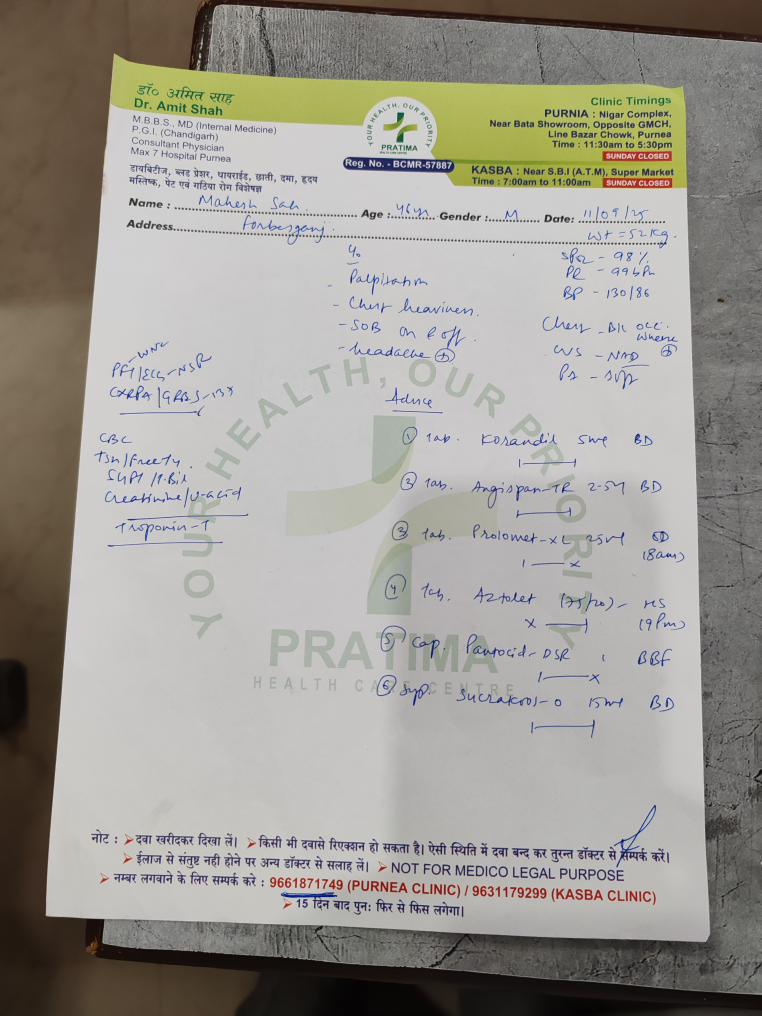 डॉ० अमित साह
Dr. Amit Shah
M.B.B.S., MD (Internal Medicine)
P.G.I. (Chandigarh)
Consultant Physician
Max 7 Hospital Purnea
डायबिटीज, ब्लड प्रेशर, थायराईड, छाती, दमा, हृदय
मस्तिष्क, पेट एवं गठिया रोग विशेषज्ञ
YOUR HEALTH, OUR PRIORITY
PRATIMA
HEALTH CARE CENTRE
Reg. No. - BCMR-57887
Clinic Timings
PURNIA : Nigar Complex,
Near Bata Showroom, Opposite GMCH,
Line Bazar Chowk, Purnea
Time : 11:30am to 5:30pm
SUNDAY CLOSED
KASBA : Near S.B.I (A.T.M), Super Market
Time : 7:00am to 11:00am SUNDAY CLOSED
Name : Mahesh Sah Age : 46yr Gender : M Date: 11/09/25
Address Forbesganj Wt = 52kg
c/o
- Palpitation
- Chest heaviness
- SOB on & off
- headache (+)
SPO2 - 98%
PR - 99bpm
BP - 130/86
Chest - B/L occ. wheeze (+)
CVS - NAD
PA - soft
PFT/ECG - NSR
CXRPA/GRBS - 138
CBC
TSH/Free T4
SGPT/T.Bil
Creatinine/U-acid
Troponin-T
Advice
① Tab. Korandil 5mg BD
② Tab. Angispan-TR 2.5 BD
③ Tab. Prolomet-XL 25mg OD
(8am)
x
④ Tab. Aztolet (75/20) - HS
(9pm)
x
⑤ Cap. Pantocid-DSR 1 BBF
x
⑥ Syp. Sucrakoos-O 15ml BD
YOUR HEALTH, OUR PRIORITY
PRATIMA
HEALTH CARE CENTRE
नोट : ➤दवा खरीदकर दिखा लें। ➤किसी भी दवासे रिएक्शन हो सकता है। ऐसी स्थिति में दवा बन्द कर तुरन्त डॉक्टर से सम्पर्क करें।
➤ईलाज से संतुष्ट नही होने पर अन्य डॉक्टर से सलाह लें। ➤NOT FOR MEDICO LEGAL PURPOSE
➤नम्बर लगवाने के लिए सम्पर्क करे : 9661871749 (PURNEA CLINIC) / 9631179299 (KASBA CLINIC)
➤15 दिन बाद पुनः फिर से फिस लगेगा।